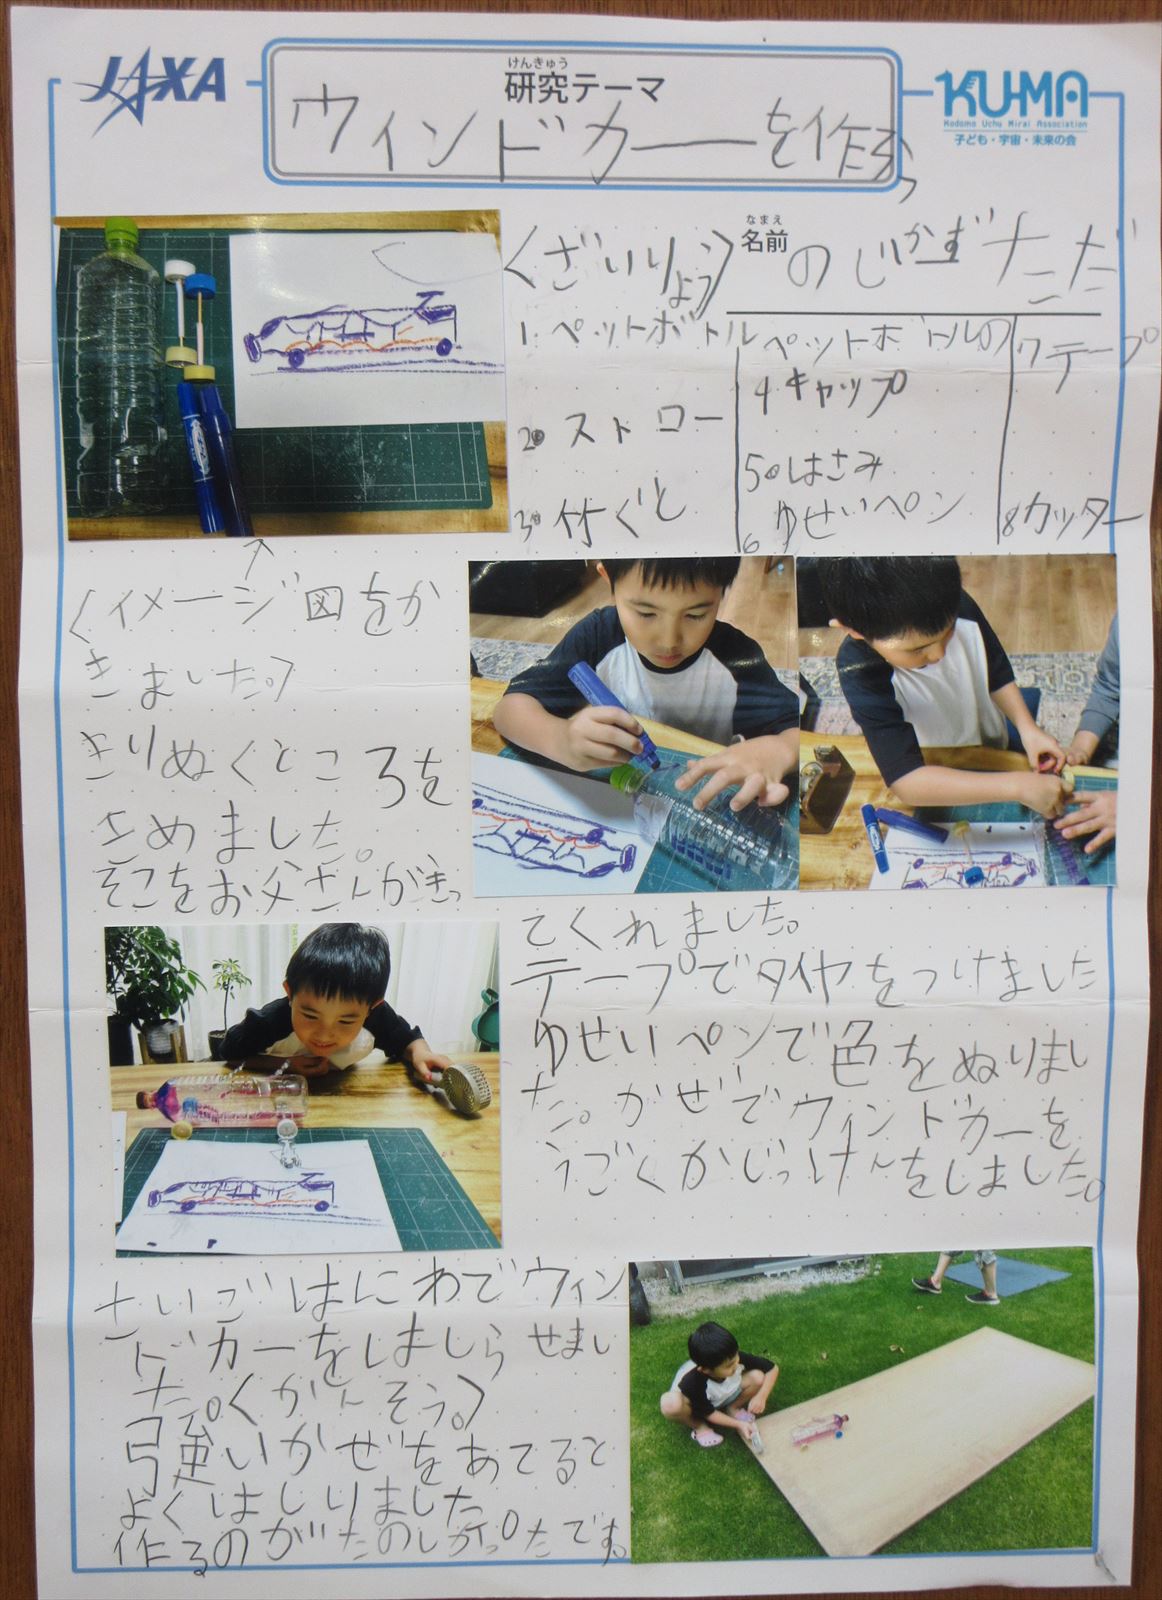 JAXA
けんきゅう
研究テーマ
ウィンドカーを作ろう
KU-MA
Kodomo Uchu Mirai Association
子ども・宇宙・未来の会
なまえ
名前
のじかずただ
〈ざいりょう〉
1. ペットボトル
2. ストロー
3. 竹ぐし
ペットボトルの
4 キャップ
5. はさみ
6 ゆせいペン
7 テープ
8 カッター
〈イメージ図をか
きました。〉
きりぬくところを
きめました。
そこをお父さんがきっ
てくれました。
テープでタイヤをつけました
ゆせいペンで色をぬりまし
た。かぜでウィンドカーを
うごくかじっけんをしました。
さいごはにわでウィン
ドカーをはしらせまし
た。〈かんそう。〉
強いかぜをあてると
よくはしりました
作るのがたのしかったです。